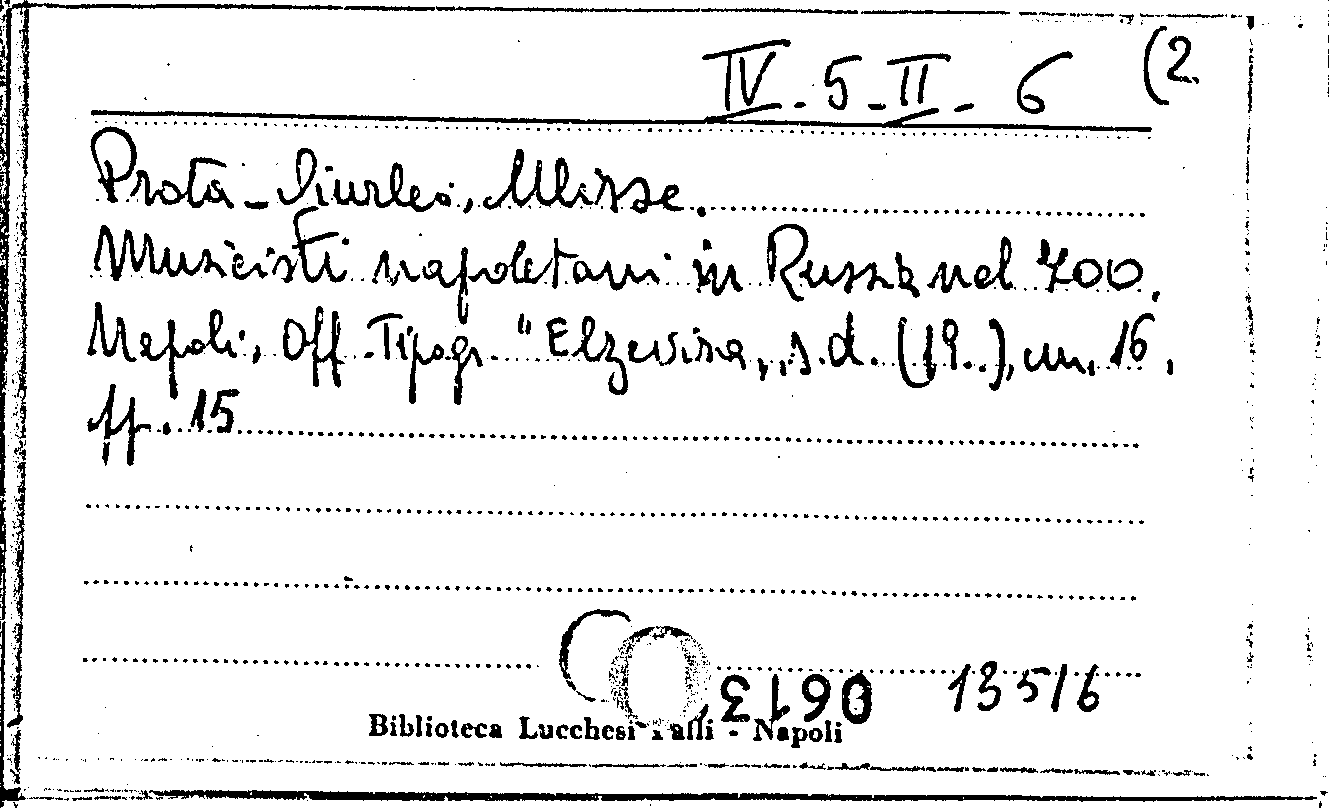 IV-5-II-6 (2
Prota-Giurleo, Ulisse.
Musicisti napoletani in Russia nel 700.
Napoli, Off. Tipogr. "Elzevira„, s.d. (19..), cm. 16,
pp. 15
0613 135/6
Biblioteca Lucchesi Palli - Napoli